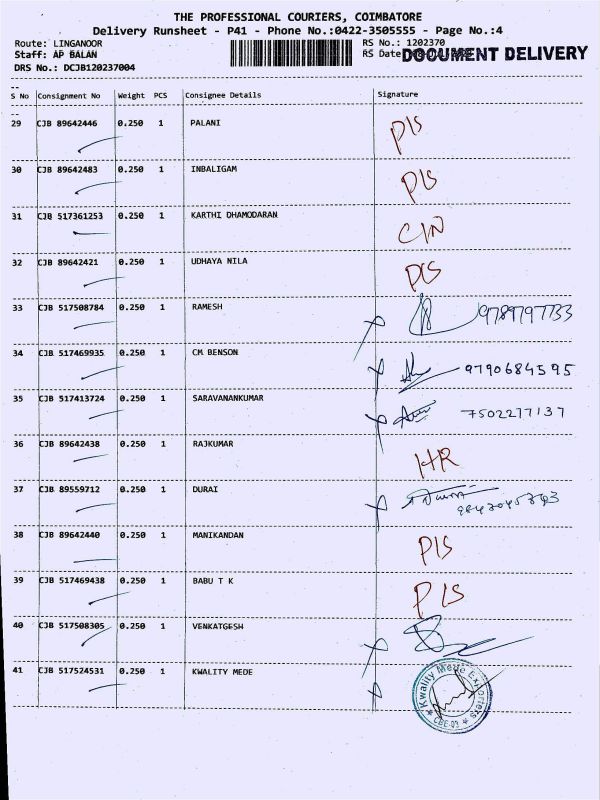 THE PROFESSIONAL COURIERS, COIMBATORE
Delivery Runsheet - P41 - Phone No.:0422-3505555 - Page No.:4
Route: LINGANOOR
RS No.: 1202370
Staff: AP BALAN
RS Date
DOCUMENT DELIVERY
DRS No.: DCJB120237004
S No Consignment No Weight PCS Consignee Details Signature
29 CJB 89642446 0.250 1 PALANI PIS
30 CJB 89642483 0.250 1 INBALIGAM PIS
31 CJB 517361253 0.250 1 KARTHI DHAMODARAN CIN
32 CJB 89642421 0.250 1 UDHAYA NILA PIS
33 CJB 517508784 0.250 1 RAMESH 9789797733
34 CJB 517469935 0.250 1 CM BENSON 9790684595
35 CJB 517413724 0.250 1 SARAVANANKUMAR 7502277137
36 CJB 89642438 0.250 1 RAJKUMAR HR
37 CJB 89559712 0.250 1 DURAI
38 CJB 89642440 0.250 1 MANIKANDAN PIS
39 CJB 517469438 0.250 1 BABU T K PIS
40 CJB 517508305 0.250 1 VENKATGESH
41 CJB 517524531 0.250 1 KWALITY MEDE
Kwality Mede Exporters
CBE-03